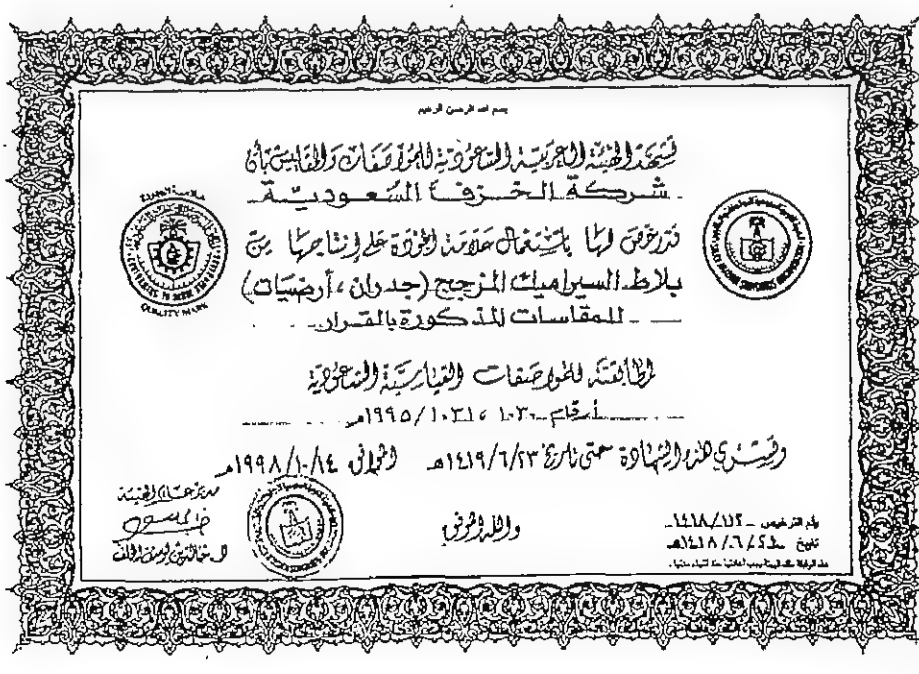 بسم الله الرحمن الرحيم
تشهد الهيئة العربية السعودية للمواصفات والمقاييس بأن
شركة الخزف السعودية
قد رخص لها باستعمال علامة الجودة على إنتاجها من
بلاط السيراميك المزجج (جدران ، أرضيات)
للمقاسات المذكورة بالقرار
لمطابقته للمواصفات القياسية السعودية
أرقام ١٠٣٠ ، ١٠٣١ / ١٩٩٥م
وتسري هذه الشهادة حتى تاريخ ١٤١٩/٦/٢٣هـ الموافق ١٩٩٨/١٠/١٤م
والله الموفق
مدير عام الهيئة
د. خالد بن يوسف الخلف
رقم الترخيص
تاريخ ١٤١٨/٦/٢٤هـ
علامة الجودة
QUALITY MARK